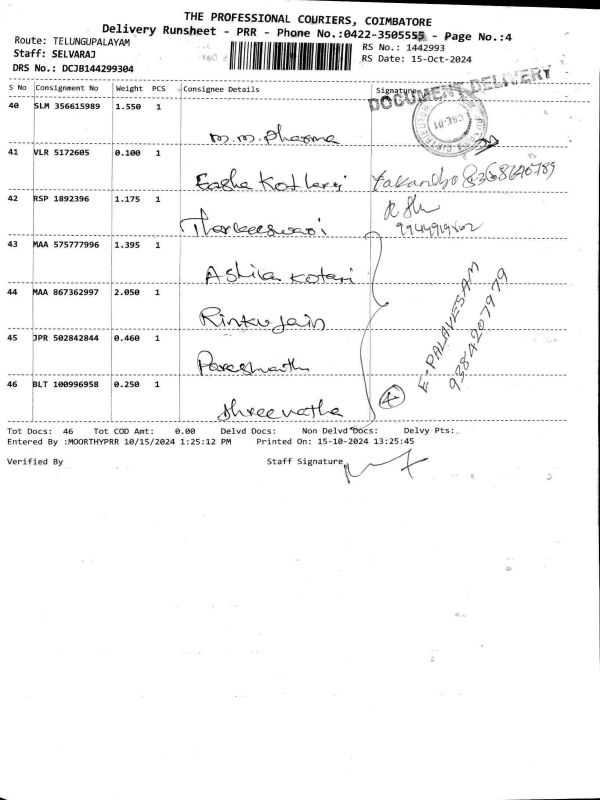 THE PROFESSIONAL COURIERS, COIMBATORE
Delivery Runsheet - PRR - Phone No.:0422-3505555 - Page No.:4
Route: TELUNGUPALAYAM
RS No.: 1442993
Staff: SELVARAJ
RS Date: 15-Oct-2024
DRS No.: DCJB144299304
DOCUMENT DELIVERY
S No Consignment No Weight PCS Consignee Details Signature
40 SLM 356615989 1.550 1
m.m. pharma
41 VLR 5172605 0.100 1
Easha Kothari
42 RSP 1892396 1.175 1
43 MAA 575777996 1.395 1
Ashika Kotari
44 MAA 867362997 2.050 1
Rinku Jain
45 JPR 502842844 0.460 1
46 BLT 100996958 0.250 1
E. PALAVESAM
9384207979
4
Tot Docs: 46 Tot COD Amt: 0.00 Delvd Docs: Non Delvd Docs: Delvy Pts:
Entered By :MOORTHYPRR 10/15/2024 1:25:12 PM Printed On: 15-10-2024 13:25:45
Verified By Staff Signature